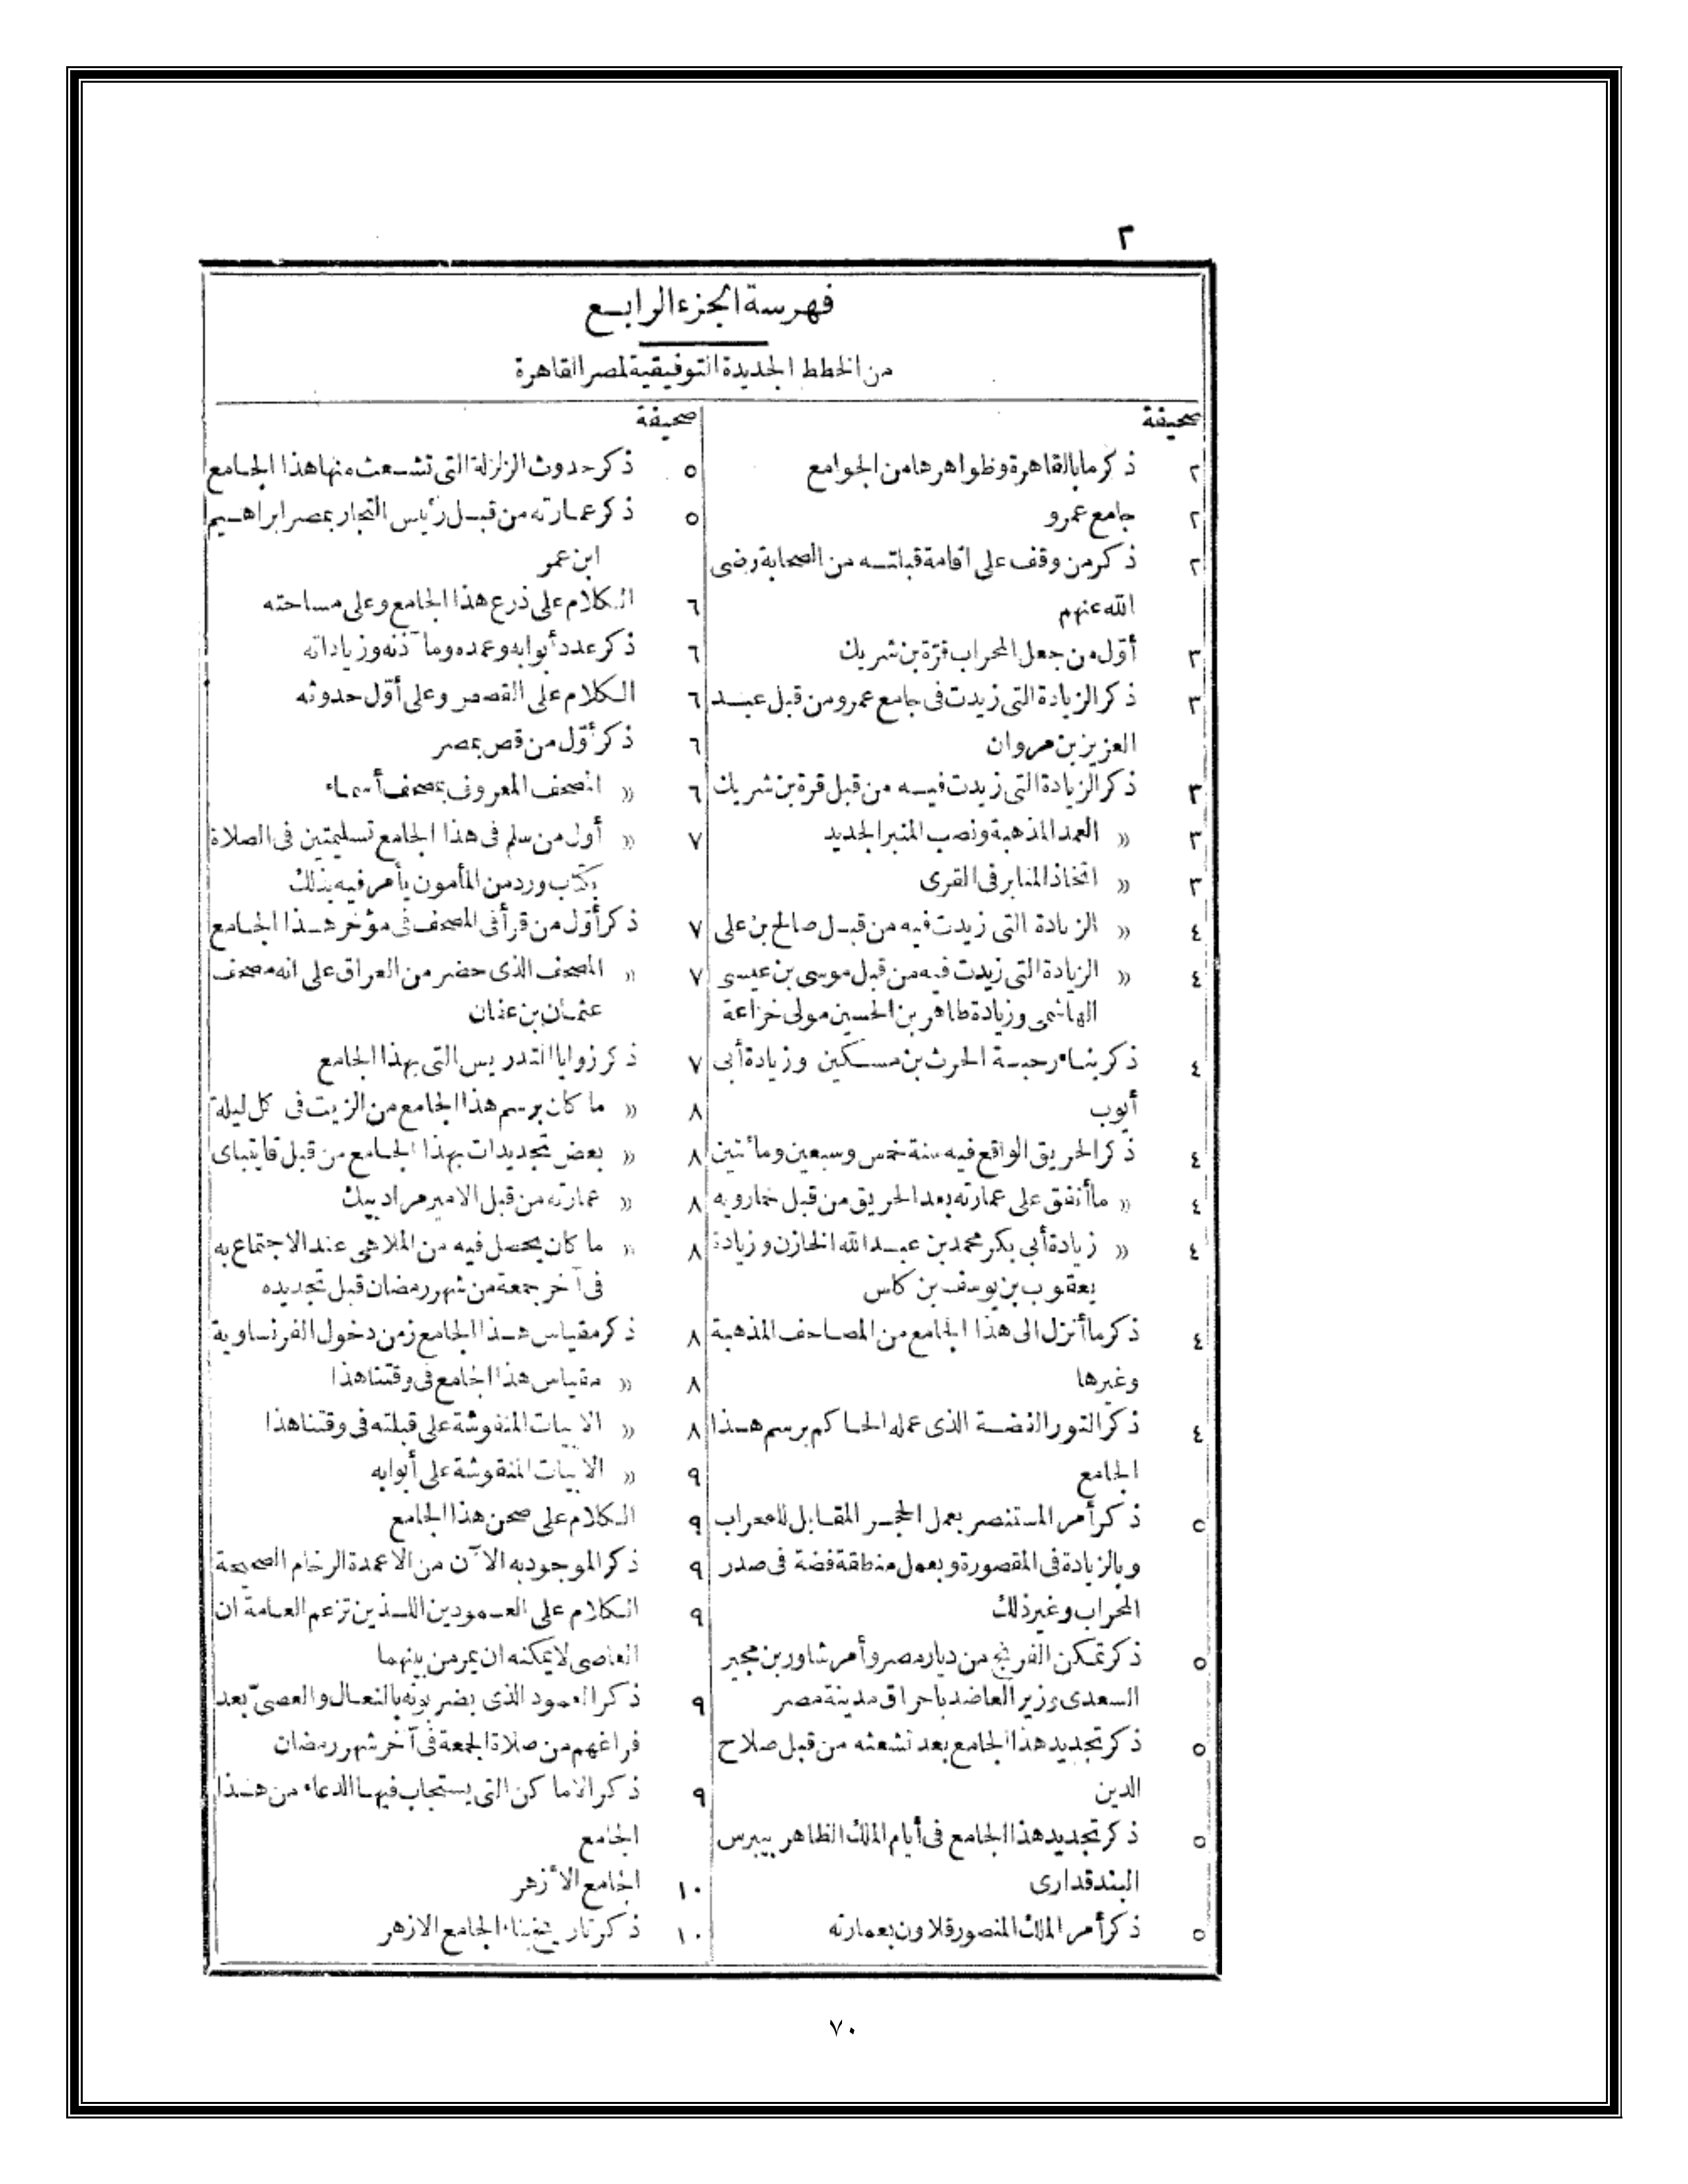 ٢
فهرسة الجزء الرابع
من الخطط الجديدة التوفيقية لمصر القاهرة
صحيفة
٢ ذكر ما بالقاهرة وظواهرها من الجوامع
٢ جامع عمرو
٢ ذكر من وقف على اقامة قبلته من الصحابة رضى
الله عنهم
٣ أوّل من جعل المحراب قرّة بن شريك
٣ ذكر الزيادة التى زيدت فى جامع عمرو من قبل عبد
العزيز بن مروان
٣ ذكر الزيادة التى زيدت فيه من قبل قرة بن شريك
٣ « العمد المذهبة ونصب المنبر الجديد
٣ « اتخاذ المنابر فى القرى
٤ « الزيادة التى زيدت فيه من قبل صالح بن على
٤ « الزيادة التى زيدت فيه من قبل موسى بن عيسى
الهاشمى وزيادة طاهر بن الحسين مولى خزاعة
٤ ذكر بناء رحبة الحرث بن مسكين وزيادة أبى
أيوب
٤ ذكر الحريق الواقع فيه سنة خمس وسبعين ومائتين
٤ « ما أنفق على عمارته بعد الحريق من قبل خمارويه
٤ « زيادة أبى بكر محمد بن عبد الله الخازن وزيادة
يعقوب بن يوسف بن كلس
٤ ذكر ما أنزل الى هذا الجامع من المصاحف المذهبة
وغيرها
٤ ذكر التور الفضة الذى عمله الحاكم برسم هذا
الجامع
٥ ذكر أمر المستنصر بعمل الحجر المقابل للمحراب
وبالزيادة فى المقصورة وبعمل منطقة فضة فى صدر
المحراب وغير ذلك
٥ ذكر تمكن الفرنج من ديار مصر وأمر شاور بن مجير
السعدى وزير العاضد باحراق مدينة مصر
٥ ذكر تجديد هذا الجامع بعد تشعثه من قبل صلاح
الدين
٥ ذكر تجديد هذا الجامع فى أيام الملك الظاهر بيبرس
البندقدارى
٥ ذكر أمر الملك المنصور قلاون بعمارته
صحيفة
٥ ذكر حدوث الزلزلة التى تشعث منها هذا الجامع
٥ ذكر عمارته من قبل رئيس التجار بمصر ابراهيم
ابن عمر
٦ الكلام على ذرع هذا الجامع وعلى مساحته
٦ ذكر عدد أبوابه وعمده ومآذنه وزياداته
٦ الكلام على القصص وعلى أوّل حدوثه
٦ ذكر أوّل من قص بمصر
٦ « المصحف المعروف بمصحف أسماء
٧ « أول من سلم فى هذا الجامع تسليمتين فى الصلاة
بكتاب ورد من المأمون يأمر فيه بذلك
٧ ذكر أوّل من قرأ فى المصحف فى مؤخر هذا الجامع
٧ « المصحف الذى حضر من العراق على انه مصحف
عثمان بن عفان
٧ ذكر زوايا التدريس التى بهذا الجامع
٨ « ما كان برسم هذا الجامع من الزيت فى كل ليلة
٨ « بعض تجديدات بهذا الجامع من قبل قايتباى
٨ « عمارته من قبل الامير مراد بيك
٨ « ما كان يحصل فيه من الملاهى عند الاجتماع به
فى آخر جمعة من شهر رمضان قبل تجديده
٨ ذكر مقياس هذا الجامع زمن دخول الفرنساوية
٨ « مقياس هذا الجامع فى وقتنا هذا
٨ « الابيات المنقوشة على قبلته فى وقتنا هذا
٩ « الابيات المنقوشة على أبوابه
٩ الكلام على صحن هذا الجامع
٩ ذكر الموجود به الآن من الاعمدة الرخام الصحيحة
٩ الكلام على العمودين اللذين تزعم العامة ان
العاصى لا يمكنه ان يمر من بينهما
٩ ذكر العمود الذى يضربونه بالنعال والعصىّ بعد
فراغهم من صلاة الجمعة فى آخر شهر رمضان
٩ ذكر الاماكن التى يستجاب فيها الدعاء من هذا
الجامع
١٠ الجامع الأزهر
١٠ ذكر تاريخ بناء الجامع الازهر
٧٠